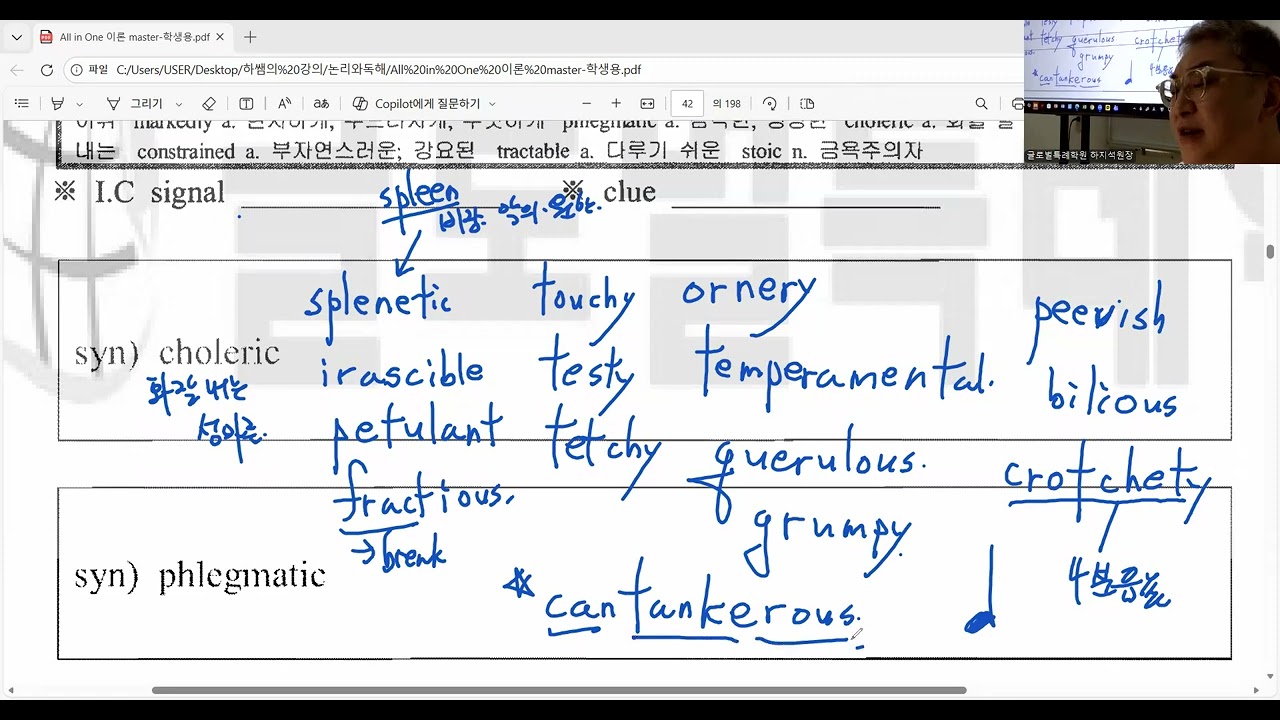 All in One 이론 master-학생용.pdf
파일 C:/Users/USER/Desktop/하쌤의%20강의/논리와독해/All%20in%20One%20이론%20master-학생용.pdf
그리기 Copilot에게 질문하기 42 의 198
markedly a. phlegmatic a. choleric a.
내는 constrained a. 부자연스러운; 강요된 tractable a. 다루기 쉬운 stoic n. 금욕주의자
글로벌특례학원 하지석원장
※ I.C signal ※ clue
spleen
비장. 악의.
splenetic touchy ornery peevish
syn) choleric irascible testy temperamental. bilious
화를 내는
성마른.
petulant tetchy querulous. crotchety
fractious. grumpy.
→ break
4분음표
syn) phlegmatic
* cantankerous.